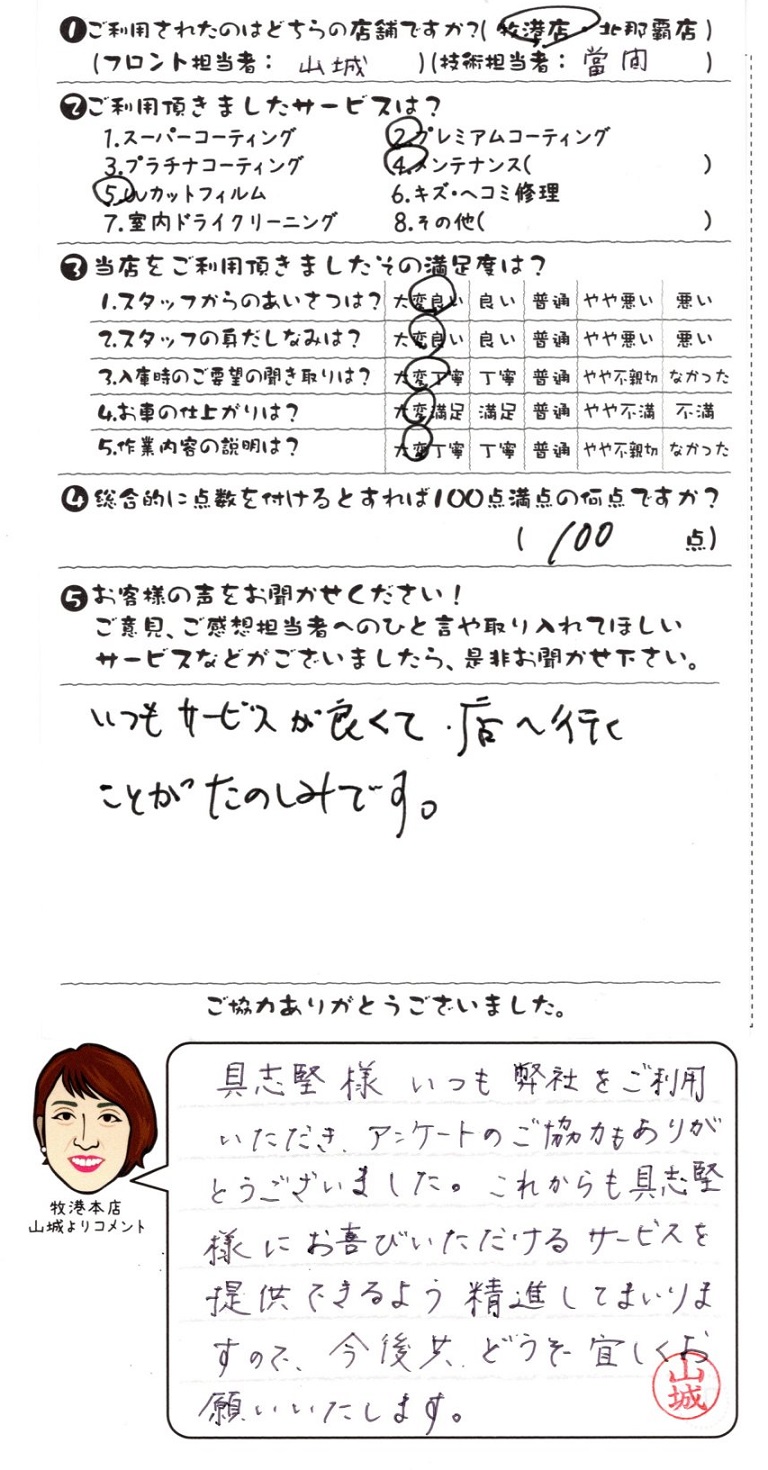 ❶ご利用されたのはどちらの店舗ですか?( 牧港店・北那覇店 )
(フロント担当者： 山城 )(技術担当者： 當間 )
❷ご利用頂きましたサービスは?
1.スーパーコーティング 2.プレミアムコーティング
3.プラチナコーティング 4.メンテナンス( )
5.UVカットフィルム 6.キズ・ヘコミ修理
7.室内ドライクリーニング 8.その他( )
❸当店をご利用頂きましたその満足度は?
1.スタッフからのあいさつは? 大変良い 良い 普通 やや悪い 悪い
2.スタッフの身だしなみは? 大変良い 良い 普通 やや悪い 悪い
3.入庫時のご要望の聞き取りは? 大変丁寧 丁寧 普通 やや不親切 なかった
4.お車の仕上がりは? 大変満足 満足 普通 やや不満 不満
5.作業内容の説明は? 大変丁寧 丁寧 普通 やや不親切 なかった
❹総合的に点数を付けるとすれば100点満点の何点ですか?
( 100 点)
❺お客様の声をお聞かせください!
ご意見、ご感想担当者へのひと言や取り入れてほしい
サービスなどがございましたら、是非お聞かせ下さい。
いつもサービスが良くて、店へ行く
ことがたのしみです。
ご協力ありがとうございました。
具志堅様 いつも弊社をご利用
いただき、アンケートのご協力もありが
とうございました。これからも具志堅
様にお喜びいただけるサービスを
提供できるよう精進してまいりま
すので、今後共、どうぞ宜しくお
願いいたします。
山城
牧港本店
山城よりコメント